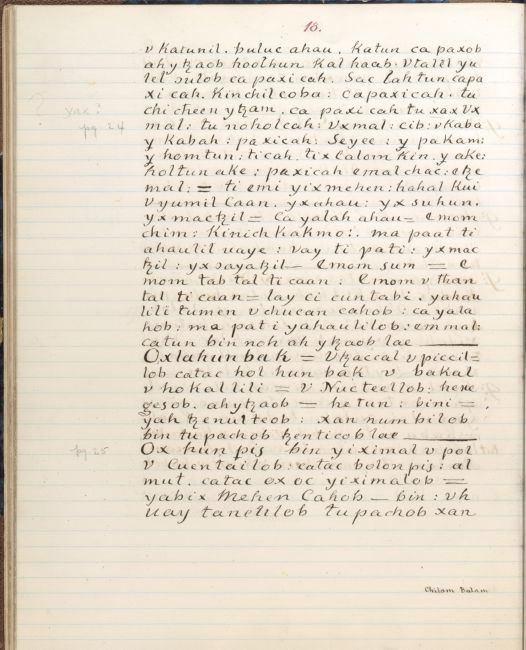 18.
v Katunil. buluc ahau. Katun ca paxob
ah ytzaob hoolhun Kal haab. Vtalel yu
lel ɔulob ca paxi cah. Sac lah tun capa
xi cah. Kinchil coba: capaxicah. tu
chi cheen ytzam. ca paxi cah tu xax Vx
mal: tu noholcah: Vxmal: cib: v Kaba
y Kabah: paxicah: Seyee: y pakam:
y homtun: ti cah. tix Calom Kin. y ake:
holtun ake: paxicah emal chac: etze
mal: = ti emi yix mehen: hahal Kui
v yumil Caan. yx ahau: yx suhun.
yx mactzil = Ca yalah ahau = emom
chim: Kinich Kakmo:. ma paat ti
ahaulil uaye: vay ti pati: yx mac
tzil: yx ɔayatzil— Emom sum = E
mom tab tal ti caan: Emom v than
tal ti caan = lay ci cuntabi. yahau
lili tumen v chucan cahob: ca yala
hob: ma pat i yahaulilob: emmal:
catun bin noh ah ytzaob lae
Oxlahun bak = V tzaccal v piccil=
lob catac hol hun bak v bakal
v ho kal lili = V Nucteellob: here
gesob. ah ytzaob = he tun: bini =
yah tzenulteob: xan num bilob
bin tu pachob tzenticob lae
Ox hun pis bin yiximal v pol
v Cuentailob: catac bolon pis: al
mut. catac ox oc yiximalob =
yabix Mehen Cahob — bin: vh
uay tanelilob tu pachob xan
yax?
pg. 24
pg. 25
Chilam Balam